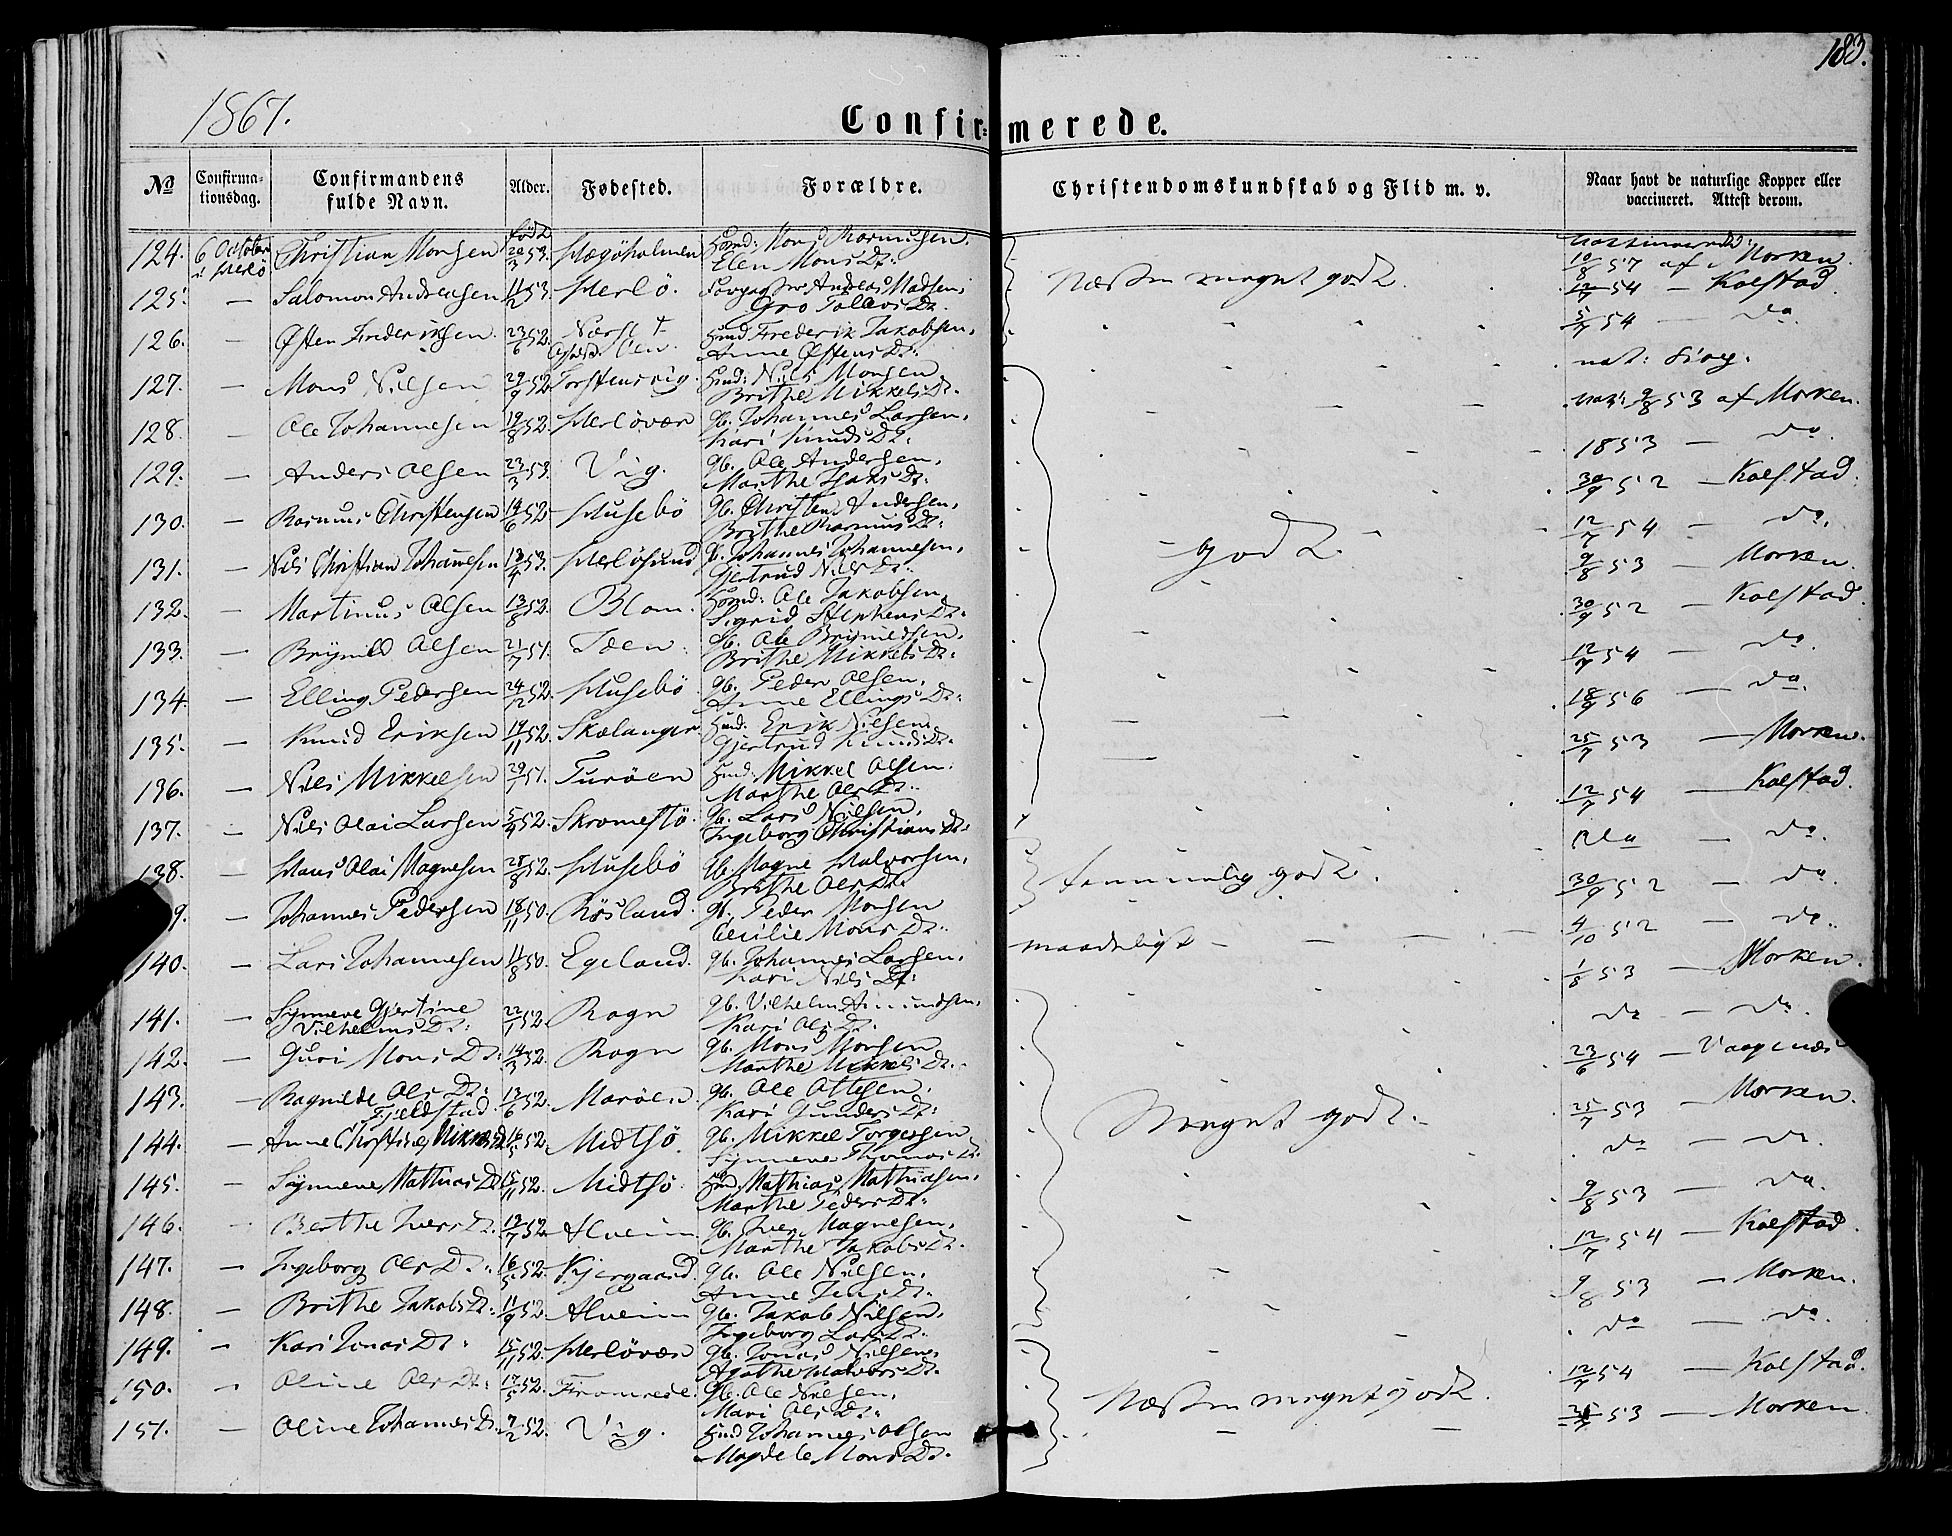 183.
1867.
Confirmerede.
No Confirmationsdag. Confirmandens fulde Navn. Alder. Fødested. Forældre. Christendomskundskab og Flid m. v. Naar havt de naturlige Kopper eller vaccineret. Attest derom.
født
124. 6 October i Herlö Christian Monsen 20/3 53. Hægöholmen Hmd: Mons Rasmusen, Elen Mons Dt. Næsten meget godt. vaccinerede: 10/8 57 af Morken.
125. — Salomon Andreasen 11/2 53. Herlö. Andreas Madsen, Gro Tollevs Dt. 12/7 54 — Kolstad.
126. — Østen Frederiksen. 23/6 52. Hmd Frederik Jakobsen, Anne Østens Dt. 5/7 54 — do.
127. — Mons Nilsen 29/9 52. Torstensvig. Hmd: Nils Monsen Brithe Mikkels Dt. nat:
128. — Ole Johannesen 19/8 52. Herlövær gb. Johannes Larsen, Kari Knuds Dt. vac: 9/8 53 af Morken.
129. — Anders Olsen 23/3 53. Vig. gb. Ole Andersen, Marthe Dt. 1853 — do.
130. — Rasmus Christensen 14/6 52. Husebö gb. Christen Andersen, Brithe Rasmus Dt. 30/9 52 — Kolstad.
131. — Nils Christian Johannesen 13/4 53. Herlösund gb. Johannes Johannesen, Gjertrud Nils Dt. godt. 12/7 54 — do.
132. — Martinus Olsen 13/8 52. Blom. Hmd: Ole Jakobsen, Sigrid Stephens Dt. 9/8 53 — Morken.
133. — Brynild Olsen 21/7 51. Toen. gb. Ole Brynildsen, Brithe Mikkels Dt. 30/9 52 — Kolstad.
134. — Elling Pedersen 24/12 52. Husebö gb. Peder Olsen, Anne Ellings Dt. 12/7 54 — do.
135. — Knud Eriksen 19/11 52. Skælanger. Hmd: Erik Nilsen, Gjertrud Knuds Dt. 18/9 56 — do.
136. — Nils Mikkelsen 29/7 51. Turöen Hmd: Mikkel Olsen, Marthe Ols Dt. 25/7 53 — Morken.
137. — Nils Olai Larsen 5/4 52. Skromestö. gb. Lars Nilsen, Ingeborg Christians Dt. 12/7 54 — Kolstad.
138. — Hans Olai Magnesen 25/8 52. Husebö gb. Magne Halvorsen, Brithe Ols Dt. temmelig godt. do — do.
9. — Johannes Pedersen 18/11 50. Rösland. gb. Peder Monsen Cecilie Mons Dt. 30/9 52 — do.
140. — Lars Johannesen 11/8 50. Egeland. gb. Johannes Larsen, Kari Nils Dt. maadeligt 4/10 52 — do.
141. — Synneve Gjertine Vilhelms Dt. 22/1 52. Rogn gb. Vilhelm Amundsen, Kari Ols Dt. 1/8 53 — Morken.
142. — Guri Mons Dt. 14/3 52. Rogn gb. Mons Monsen Marthe Mikkels Dt. do — do.
143. — Ragnilde Ols Dt. Fjeldstad. 13/6 52. Maröen gb. Ole Ottesen, Kari Gunders Dt. Meget godt. 23/6 54 — Vaagenæs
144. — Anne Christine Mikkels Dt 52. Midtsö. gb. Mikkel Torgersen Synneve Thomas Dt. 25/7 53 — Morken.
145. — Synneve Mathias Dt 15/11 52. Midtsö. Hmd. Mathias Mathiasen, Marthe Peders Dt. do — do.
146. — Berthe Ivers Dt. 12/7 52. Alveim. gb. Iver Magnesen, Marthe Jakobs Dt. 9/8 53 — do.
147. — Ingeborg Ols Dt. 16/5 52. Kjergaard. gb. Ole Nilsen, Anne Jens Dt. 12/7 54 — Kolstad.
148. — Brithe Jakobs Dt. 11/9 52. Alveim gb. Jakob Nilsen, Ingeborg Lars Dt. 9/8 53 — Morken.
149. — Kari Jonas Dt. 15/11 52. Herlövær gb. Jonas Nilsen, Agathe Halvors Dt. do — do.
150. — Oline Ols Dt. 17/5 52. Fromrede. gb. Ole Nilsen, Mari Ols Dt. Næsten meget godt. 12/7 54 — Kolstad.
151. — Oline Johannes Dt. 7/2 52. Vig. Hmd Johannes Olsen Magdele Mons Dt. 25/7 53 — Morken